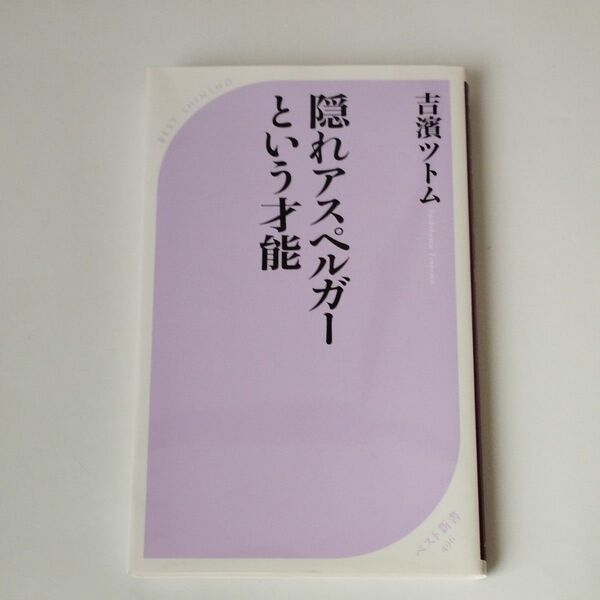 吉濱ツトム
Yoshihama Tsutomu
隠れアスペルガー
という才能
BEST SHINSHO
ベスト新書
496